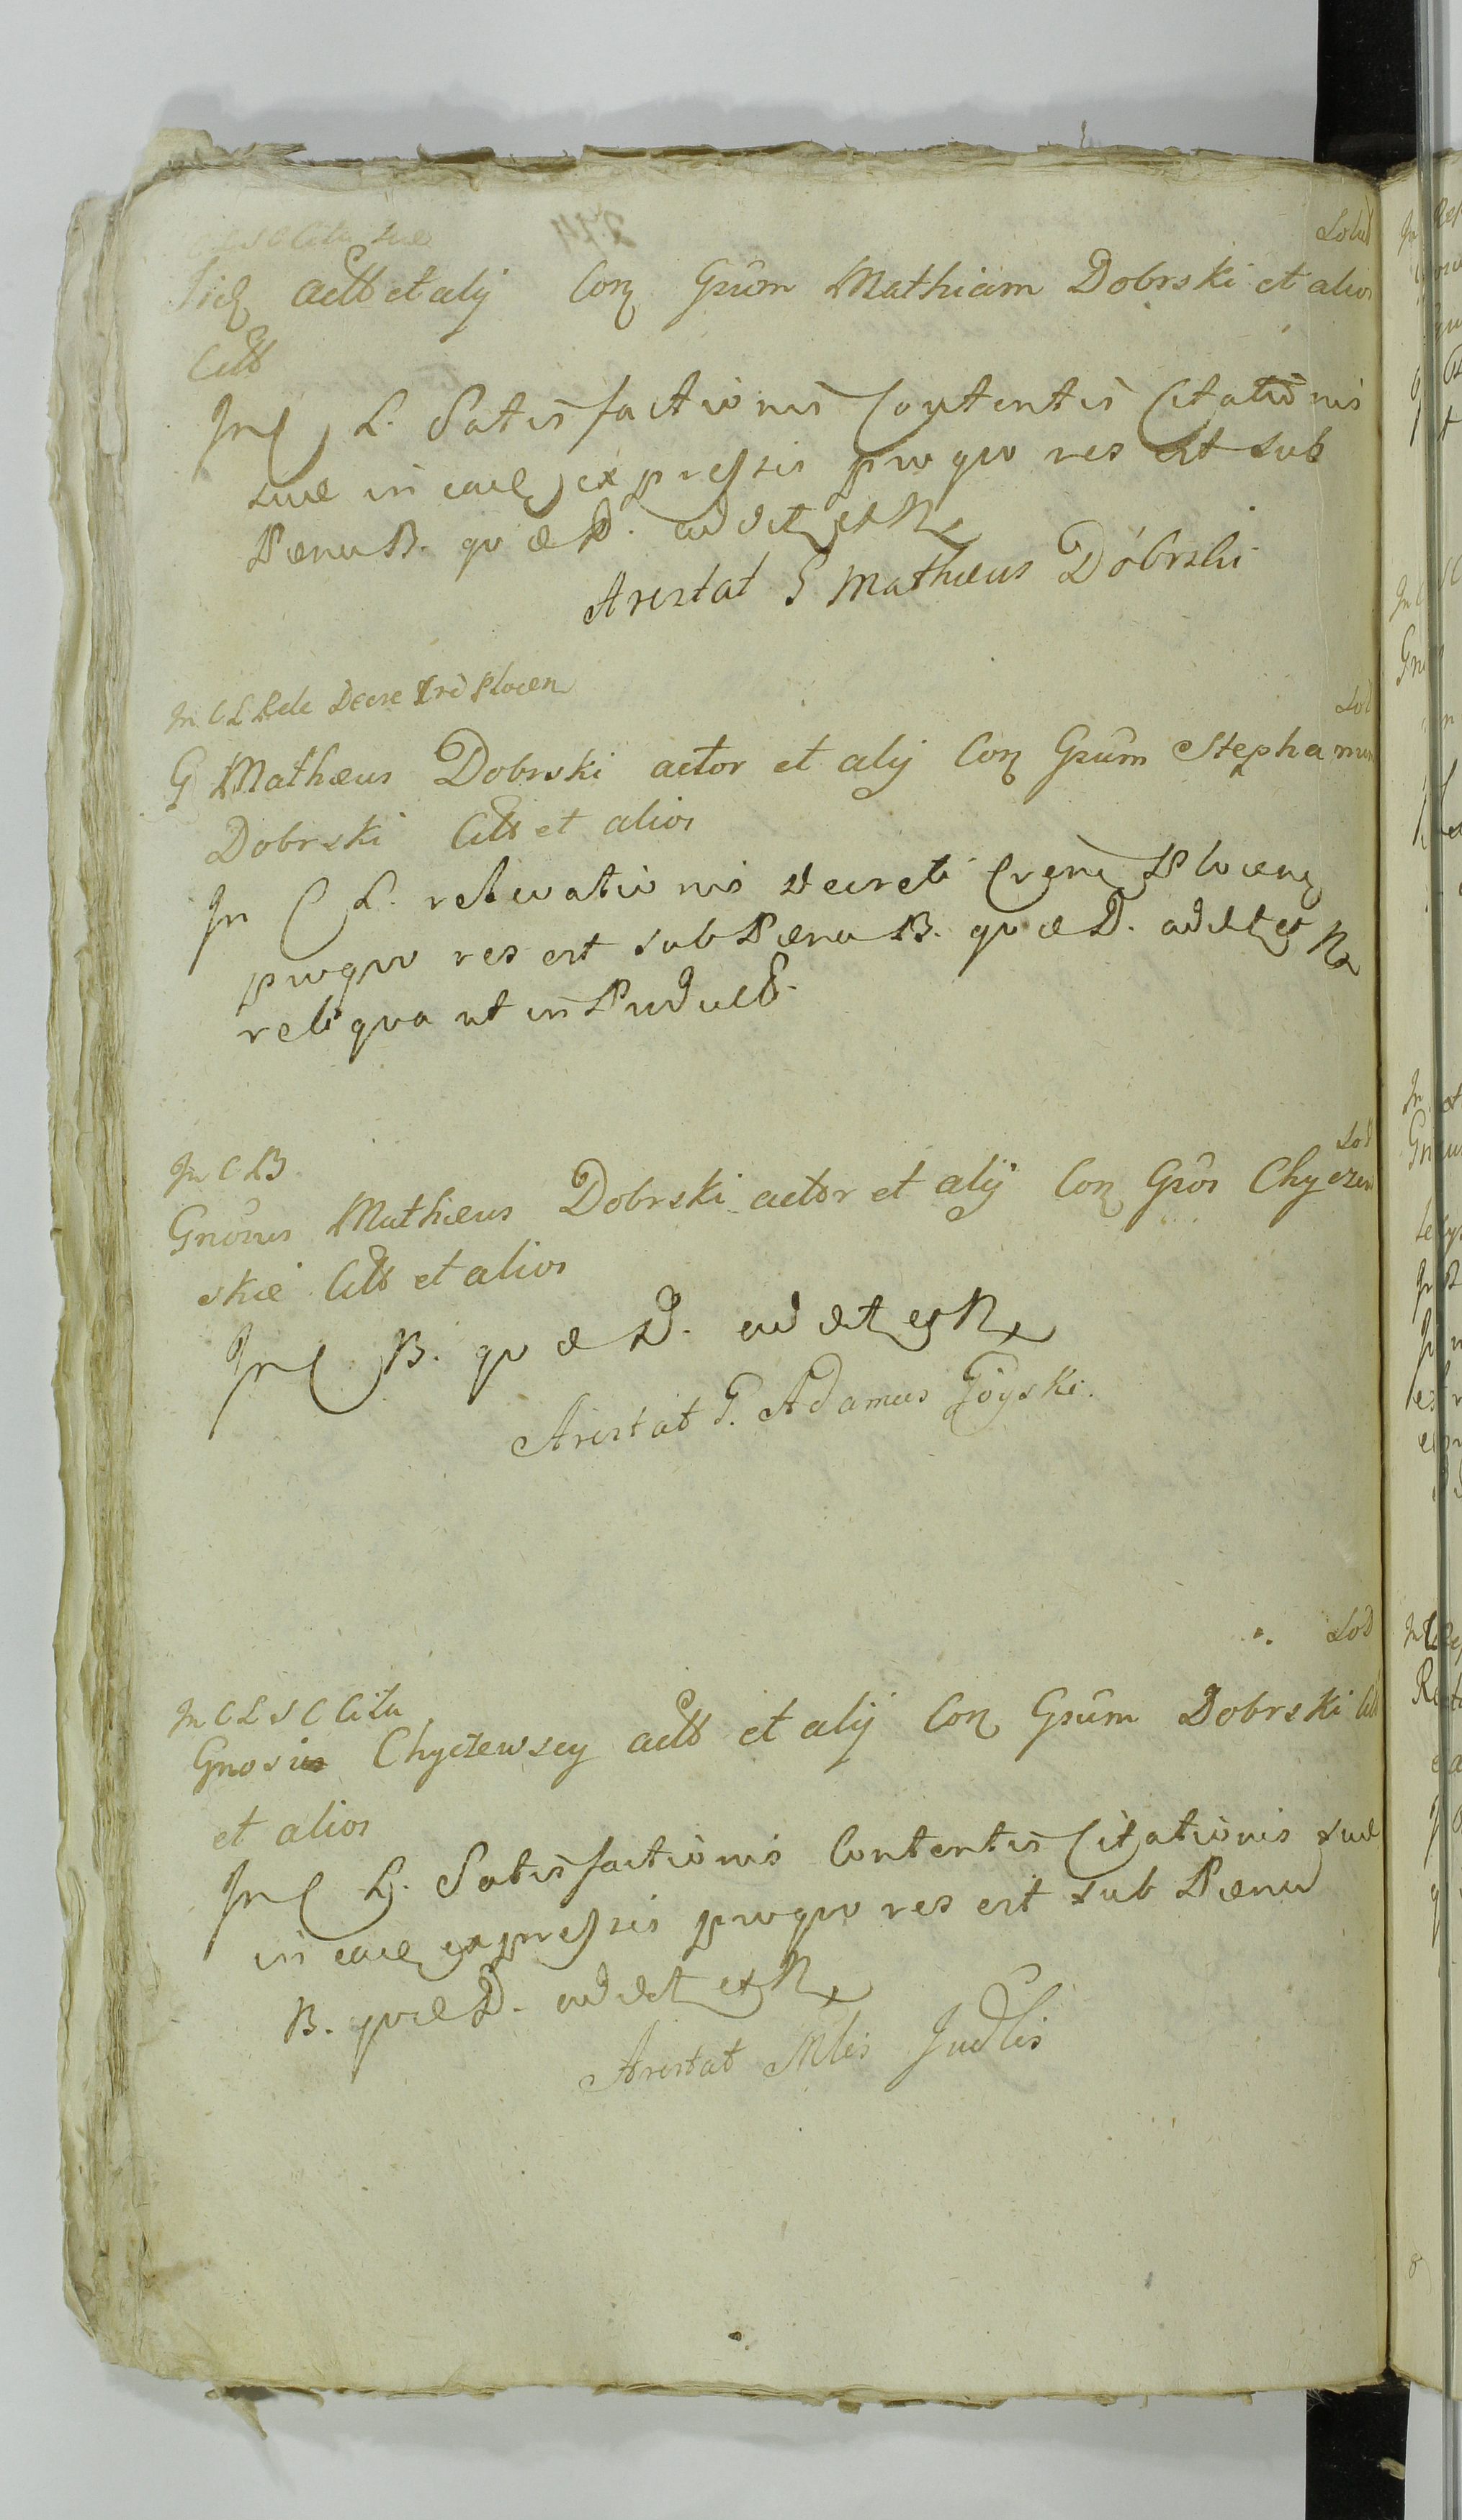 Actt et alij Con Gsum Mathiam Dobrski et alios
Citt
In C L. Satisfactionis Contentis Citationis
suæ in eaq expressis pro quo res est sub
Pœna B. quæ D. ad dct et R
Arestat G Mathæus Dobrski
In C L Rele Decre Crē Plocen
G Mathæus Dobrski actor et alij Con Gsum Stephanum
Dobrski Citt et alios
In C L. relevationis decreti Plocen
pro quo res est sub Pœna B. quæ D. ad dct et R
reliqua ut in
In C B
Gnosus Mathæus Dobrski actor et alij Con Gsos Chyczew
skie Citt et alios
In C B. quæ D. ad dct et R
Arestat G. Adamus Goyski.
Lod
In C L S C Cita
Gnosi Chyczewscy actt et alij Con Gsum Dobrski Citt
et alios
In C L. Satisfactionis Contentis Citationis suæ
in eaq expressis pro quo res est sub Pœna
B. quæ D. ad dct et R
Arestat Mlis Judlis